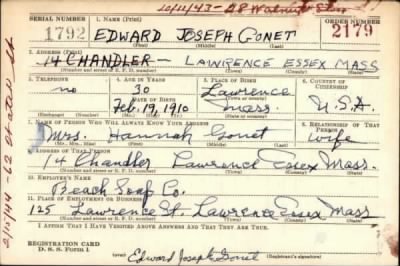 10/11/43-28 Walnut
SERIAL NUMBER 1. NAME (Print) ORDER NUMBER
1792 EDWARD JOSEPH GONET 2179
(First) (Middle) (Last)
2. ADDRESS (Print)
14 CHANDLER — LAWRENCE ESSEX MASS
(Number and street or R. F. D. number) (Town) (County) (State)
3. TELEPHONE 4. AGE IN YEARS 5. PLACE OF BIRTH 6. COUNTRY OF CITIZENSHIP
no 30 Lawrence
DATE OF BIRTH
Feb. 19, 1910 Mass. U.S.A.
(Mo.) (Day) (Yr.)
7. NAME OF PERSON WHO WILL ALWAYS KNOW YOUR ADDRESS 8. RELATIONSHIP OF THAT PERSON
Mrs. Hannah Gonet wife
(Mr., Mrs., Miss) (First) (Middle) (Last)
9. ADDRESS OF THAT PERSON
14 Chandler Lawrence Essex Mass.
(Number and street or R. F. D. number) (Town) (County) (State)
10. EMPLOYER'S NAME
Beach Soap Co.
11. PLACE OF EMPLOYMENT OR BUSINESS
125 Lawrence St. Lawrence Essex Mass
(Number and street or R. F. D. number) (Town) (County) (State)
I AFFIRM THAT I HAVE VERIFIED ABOVE ANSWERS AND THAT THEY ARE TRUE.
REGISTRATION CARD
D. S. S. Form 1 (over) Edward Joseph Gonet
(Registrant's signature)